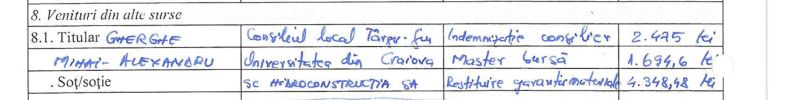 8. Venituri din alte surse
8.1. Titular GHERGHE Consiliul local Târgu-Jiu Indemnizație consilier 2.475 lei
MIHAI-ALEXANDRU Universitatea din Craiova Master bursă 1.694,6 lei
. Soț/soție SC HIDROCONSTRUCTIA SA Restituire garanție materială 4.348,48 lei